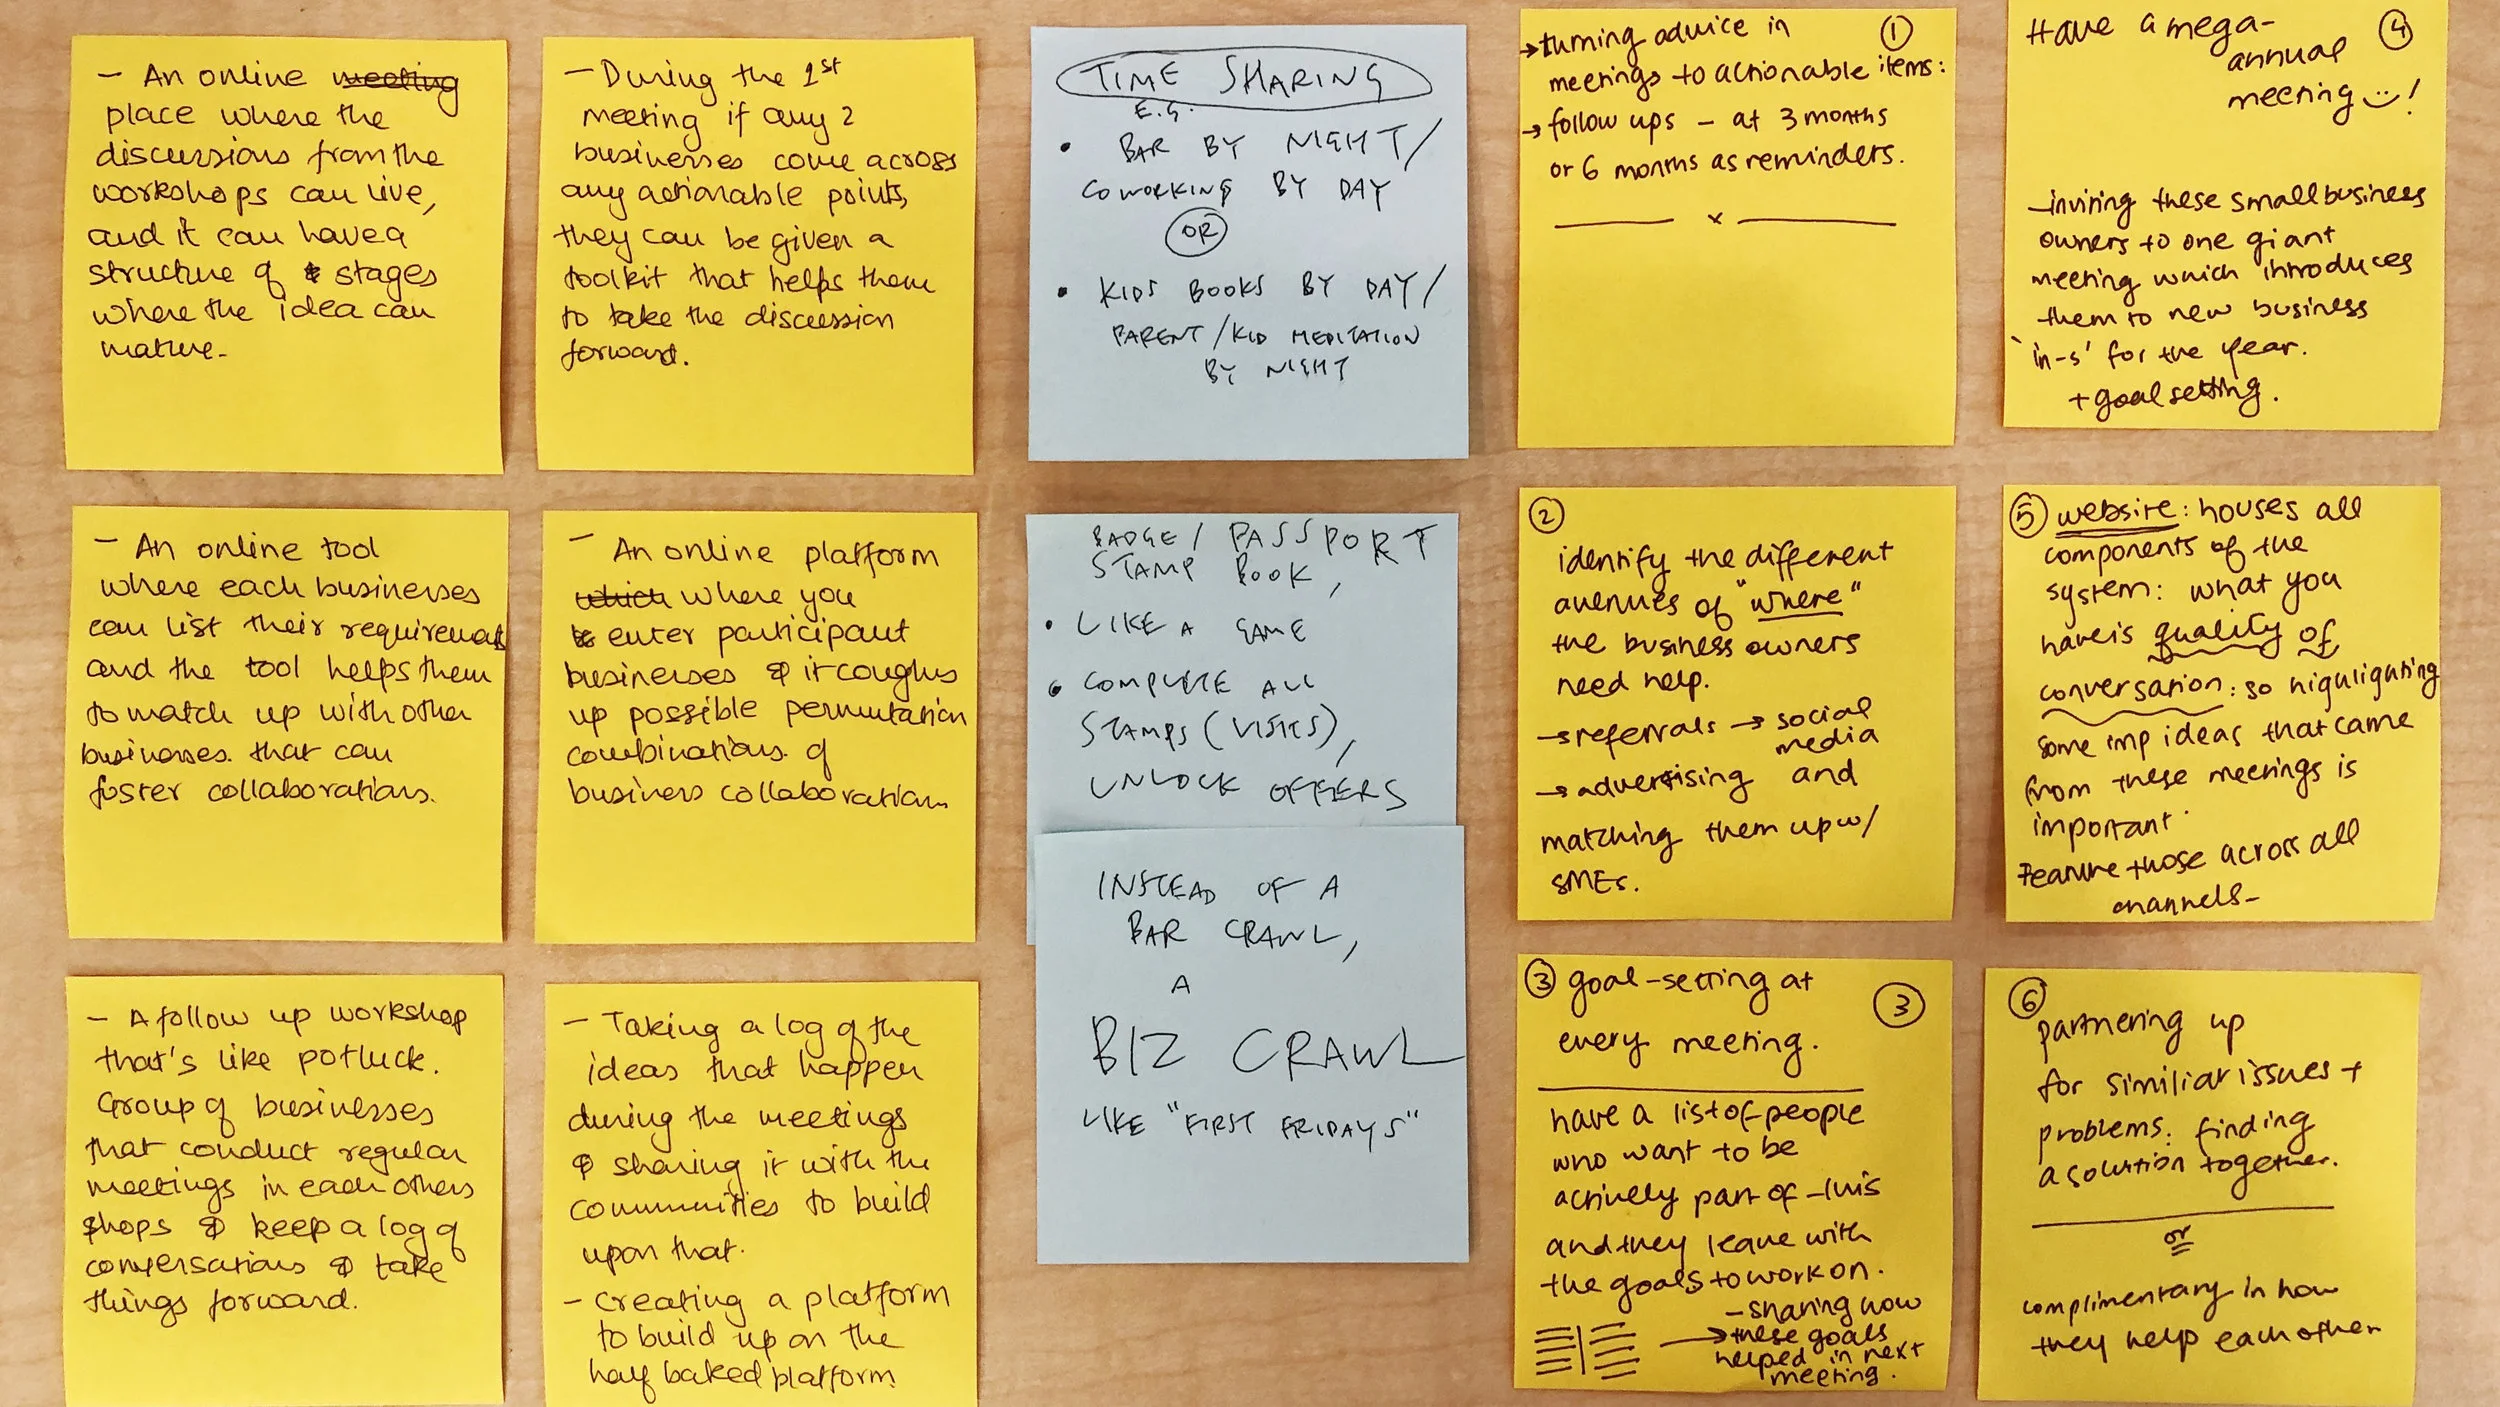 - An online meeting
place where the
discussions from the
workshops can live,
and it can have a
structure of stages
where the idea can
mature-
- During the 1st
meeting if any 2
businesses come across
any actionable points,
they can be given a
toolkit that helps them
to take the discussion
forward.
TIME SHARING
E.G.
• BAR BY NIGHT/
COWORKING BY DAY
OR
• KIDS BOOKS BY DAY/
PARENT/KID MEDITATION
BY NIGHT
①
→ turning advice in
meetings to actionable items:
→ follow ups - at 3 months
or 6 months as reminders.
x
④
Have a mega-
annual
meeting !
- inviting these small business
owners to one giant
meeting which introduces
them to new business
'in-s' for the year.
+ goal setting.
- An online tool
where each businesses
can list their requirements
and the tool helps them
to match up with other
businesses that can
foster collaborations.
- An online platform
which where you
enter participant
businesses & it coughs
up possible permutation
combinations of
business collaborations
BADGE / PASSPORT
STAMP BOOK,
• LIKE A GAME
• COMPLETE ALL
STAMPS (VISITS),
UNLOCK OFFERS
②
identify the different
avenues of "where"
the business owners
need help.
→ referrals → social
media
→ advertising and
matching them up w/
SMEs.
⑤ website: houses all
components of the
system: what you
have is quality of
conversation: so highlighting
some imp ideas that came
from these meetings is
important.
Feature those across all
channels-
- A follow up workshop
that's like potluck.
Group of businesses
that conduct regular
meetings in each others
shops & keep a log of
conversations & take
things forward.
- Taking a log of the
ideas that happen
during the meetings
& sharing it with the
communities to build
upon that.
- Creating a platform
to build up on the
half baked platform
INSTEAD OF A
BAR CRAWL,
A
BIZ CRAWL
LIKE "FIRST FRIDAYS"
③ goal-setting at
every meeting.
③
have a list of people
who want to be
actively part of this
and they leave with
the goals to work on.
- sharing how
→ these goals
helped in next
meeting.
⑥
partnering up
for similiar issues +
problems: finding
a solution together.
or
complimentary in how
they help each other